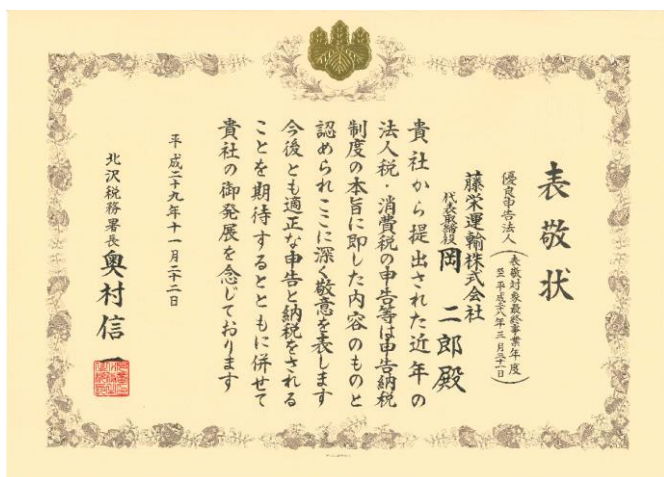 表敬状
優良申告法人(表敬対象最終事業年度
至平成二十八年三月三十一日)
藤栄運輸株式会社
代表取締役 岡二郎殿
貴社から提出された近年の
法人税・消費税の申告等は申告納税
制度の本旨に即した内容のものと
認められここに深く敬意を表します
今後とも適正な申告と納税をされる
ことを期待するとともに併せて
貴社の御発展を念じております
平成二十九年十一月二十二日
北沢税務署長 奥村信一